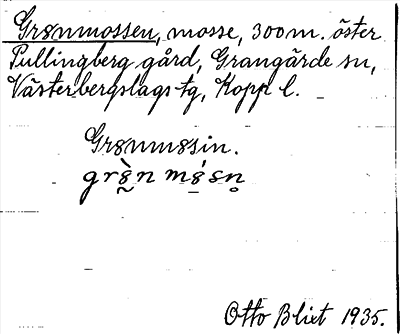 Grønmossen, mosse, 300 m. öster
Pullingberg gård, Grangärde sn,
Västerbergslags tg, Kopp l.
Grønmøsin.
grø̀n mǿsn̥
Otto Blixt 1935.